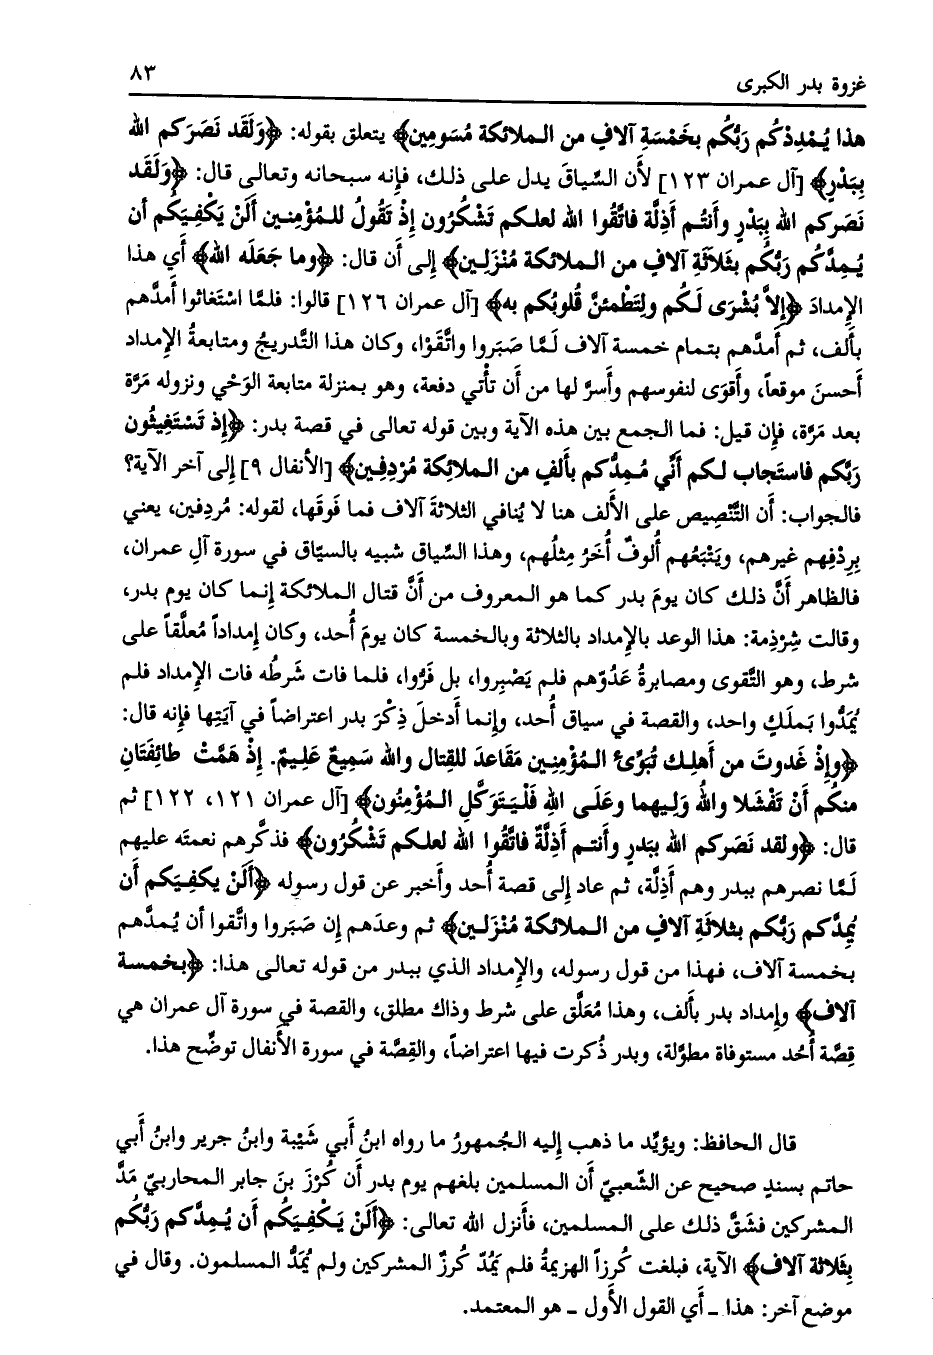 غزوة بدر الكبرى ٨٣
هذا يُـمْدِدْكُم رَبُّكُم بخَمْسَةِ آلافٍ من الـملائكة مُسَومِين﴾ يتعلق بقوله: ﴿وَلَقَد نَصَرَكم الله
بِبَدْرٍ﴾ [آل عمران ١٢٣] لأن السِّياقَ يدل على ذلك، فإنه سبحانه وتعالى قال: ﴿وَلَقَد
نَصَركم الله بِبَدْرٍ وأَنتُـم أَذِلَّة فاتَّقُوا الله لعلكـم تَشْكُرُون إِذْ تَقُولُ للـمُؤْمنـين أَلَنْ يَكْفِيَكُم أن
يُـمِدَّكُم رَبُّكُم بثَلاثَةِ آلاف من الـملائكة مُنْزَلِين﴾ إلى أن قال: ﴿وما جَعَلَه الله﴾ أي هذا
الإمدادَ ﴿إِلاَّ بُشْرَى لَـكُم ولِتَطْمئنَّ قُلوبُكم به﴾ [آل عمران ١٢٦] قالوا: فلمَّا اسْتَغاثوا أمدَّهم
بأَلف، ثم أَمدَّهم بتمام خمسة آلاف لَـمَّا صَبَروا واتَّقَوْا، وكان هذا التَّدريجُ ومتابعةُ الإمداد
أَحسنَ موقعاً، وأَقوَى لنفوسهم وأَسرَّ لها من أَن تأْتي دفعة، وهو بمنزلة متابعة الوَحْي ونزوله مَرَّة
بعد مَرَّة، فإن قيل: فما الجمع بين هذه الآية وبين قوله تعالى في قصة بدر: ﴿إذ تَسْتَغِيثُون
رَبَّكم فاستَجاب لـكم أَنِّي مُـمِدُّكم بأَلفٍ من الـملائِكة مُرْدِفِين﴾ [الأنفال ٩] إلى آخر الآية؟
فالجواب: أن التَّنْصِيص على الألف هنا لا يُنافي الثلاثةَ آلاف فما فَوقَها، لقوله: مُردِفين، يعني
بِرِدْفِهم غيرهم، ويَتْبَعُهم أُلوفٌ أُخَرُ مِثلُهم، وهذا السِّياق شبيه بالسيّاق في سورة آلِ عمران،
فالظاهر أَنَّ ذلك كان يومَ بدر كما هو المعروف من أَنَّ قتال الملائكة إِنما كان يوم بدر،
وقالت شِرْذِمة: هذا الوعد بالإمداد بالثلاثة وبالخمسة كان يومَ أُحد، وكان إِمداداً مُعلَّقاً على
شرط، وهو التَّقوى ومصابرةُ عَدُوّهم فلم يَصْبِروا، بل فَرُّوا، فلما فات شَرطُه فات الإمداد فلم
يُمَدُّوا بمَلَكٍ واحد، والقصة في سياق أُحد، وإنما أَدخلَ ذِكْرَ بدر اعتراضاً في آيَتِها فإنه قال:
﴿وإِذْ غَدوتَ من أَهلِك تُبَوِّئُ الـمُؤْمنِـين مَقَاعدَ للقِتال والله سَمِيعٌ عَلِيـمٌ. إِذْ هَمَّتْ طائِفَتَانِ
منكُم أَنْ تَفْشَلا واللهُ وَلِيهما وعَلَـى اللهِ فَلْيَتَوَكَّلِ الـمُؤْمنُون﴾ [آل عمران ١٢١، ١٢٢] ثم
قال: ﴿ولقد نَصَركم الله ببَدرٍ وأَنتـم أَذِلَّةٌ فاتَّقُوا الله لعلكم تَشْكُرُون﴾ فذكَّرهم نعمتَه عليهم
لَـمَّا نصرهم ببدر وهم أَذِلَّة، ثم عاد إِلى قصة أُحد وأَخبر عن قول رسوله ﴿أَلَنْ يكفِيَكم أَن
يُمِدَّكم رَبُّكم بثلاثَةِ آلافٍ من الـملائكة مُنْزَلـين﴾ ثم وعدَهم إِن صَبَروا واتَّقوا أن يُـمدَّهم
بخمسة آلاف، فهذا من قول رسوله، والإمداد الذي ببدر من قوله تعالى هذا: ﴿بـخمسة
آلاف﴾ وإمداد بدر بأَلف، وهذا مُعَلَّق على شرط وذاك مطلق، والقصة في سورة آل عمران هي
قِصَّة أُحُد مستوفاة مطوَّلة، وبدر ذُكرت فيها اعتراضاً، والقِصَّة في سورة الأَنفال توضِّح هذا.
قال الحافظ: ويؤيِّد ما ذهب إليه الجُمهورُ ما رواه ابنُ أَبي شَيْبة وابنُ جرير وابنُ أَبي
حاتم بسندٍ صحيح عن الشَّعبيّ أن المسلمين بلغهم يوم بدر أَن كُرْزَ بنَ جابر المحاربيّ مَدَّ
المشركين فشَقَّ ذلك على المسلمين، فأَنزل الله تعالى: ﴿أَلَنْ يَـكْفِيَكُم أَن يُـمِدَّكم رَبُّكُم
بِثَلاثة آلاف﴾ الآية، فبلغت كُرزاً الهزيمةُ فلم يَمُدَّ كُرزٌ المشركين ولم يُمَدَّ المسلمون. وقال في
موضع آخر: هذا ـ أَي القول الأَول ـ هو المعتمد.